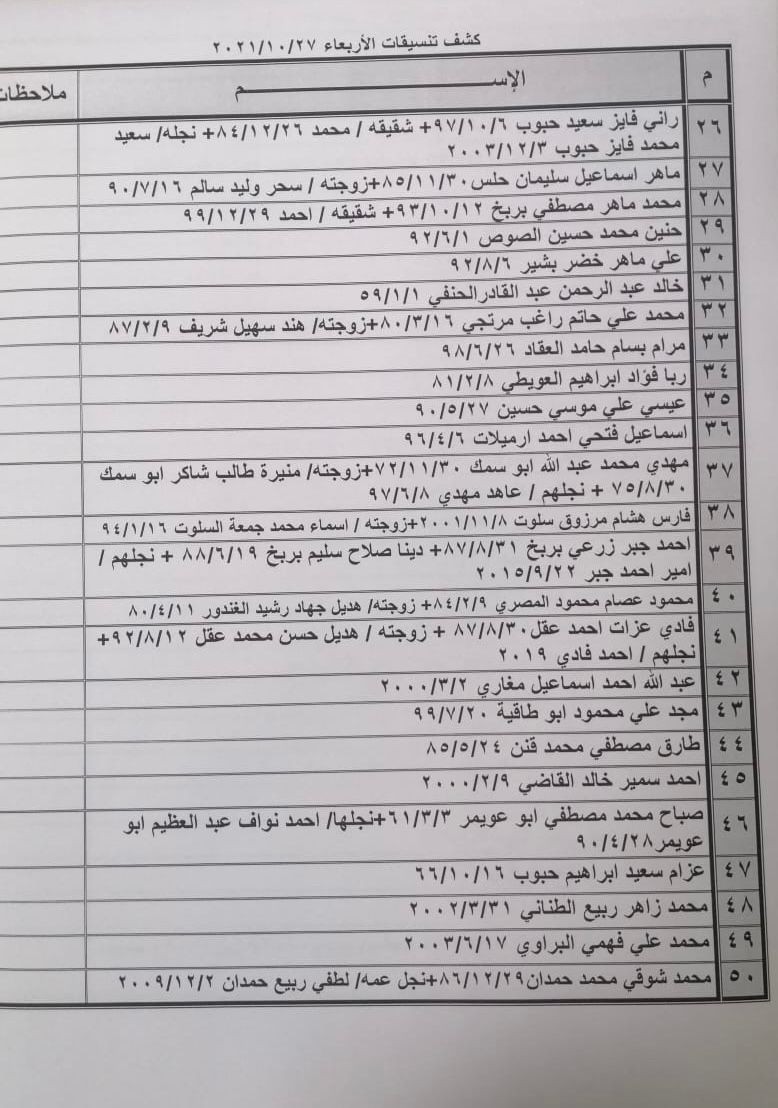 كشف تنسيقات الأربعاء ٢٠٢١/١٠/٢٧
م الإســـــــم ملاحظات
٢٦ راني فايز سعيد حبوب ٩٧/١٠/٦+ شقيقه / محمد ٨٤/١٢/٢٦+ نجله/ سعيد
محمد فايز حبوب ٢٠٠٣/١٢/٣
٢٧ ماهر اسماعيل سليمان حلس ٨٥/١١/٣٠+زوجته / سحر وليد سالم ٩٠/٧/١٦
٢٨ محمد ماهر مصطفي بربخ ٩٣/١٠/١٢+ شقيقه / احمد ٩٩/١٢/٢٩
٢٩ حنين محمد حسين الصوص ٩٢/٦/١
٣٠ علي ماهر خضر بشير ٩٢/٨/٦
٣١ خالد عبد الرحمن عبد القادرالحنفي ٥٩/١/١
٣٢ محمد علي حاتم راغب مرتجي ٨٠/٣/١٦+زوجته/ هند سهيل شريف ٨٧/٢/٩
٣٣ مرام بسام حامد العقاد ٩٨/٦/٢٦
٣٤ ربا فؤاد ابراهيم العويطي ٨١/٢/٨
٣٥ عيسي علي موسي حسين ٩٠/٥/٢٧
٣٦ اسماعيل فتحي احمد ارميلات ٩٦/٤/٦
٣٧ مهدي محمد عبد الله ابو سمك ٧٢/١١/٣٠+زوجته/ منيرة طالب شاكر ابو سمك
٧٥/٨/٣٠ + نجلهم / عاهد مهدي ٩٧/٦/٨
٣٨ فارس هشام مرزوق سلوت ٢٠٠١/١١/٨+زوجته / اسماء محمد جمعة السلوت ٩٤/١/١٦
٣٩ احمد جبر زرعي بربخ ٨٧/٨/٣١+ دينا صلاح سليم بربخ ٨٨/٦/١٩ + نجلهم /
امير احمد جبر ٢٠١٥/٩/٢٢
٤٠ محمود عصام محمود المصري ٨٤/٢/٩+ زوجته/ هديل جهاد رشيد الغندور ٨٠/٤/١١
٤١ فادي عزات احمد عقل ٨٧/٨/٣٠ + زوجته / هديل حسن محمد عقل ٩٢/٨/١٢+
نجلهم / احمد فادي ٢٠١٩
٤٢ عبد الله احمد اسماعيل مغاري ٢٠٠٠/٣/٢
٤٣ مجد علي محمود ابو طاقية ٩٩/٧/٢٠
٤٤ طارق مصطفي محمد قنن ٨٥/٥/٢٤
٤٥ احمد سمير خالد القاضي ٢٠٠٠/٢/٩
٤٦ صباح محمد مصطفي ابو عويمر ٦١/٣/٣+نجلها/ احمد نواف عبد العظيم ابو
عويمر٩٠/٤/٢٨
٤٧ عزام سعيد ابراهيم حبوب ٦٦/١٠/١٦
٤٨ محمد زاهر ربيع الطناني ٢٠٠٢/٣/٣١
٤٩ محمد علي فهمي البراوي ٢٠٠٣/٦/١٧
٥٠ محمد شوقي محمد حمدان٨٦/١٢/٢٩+نجل عمه/ لطفي ربيع حمدان ٢٠٠٩/١٢/٢